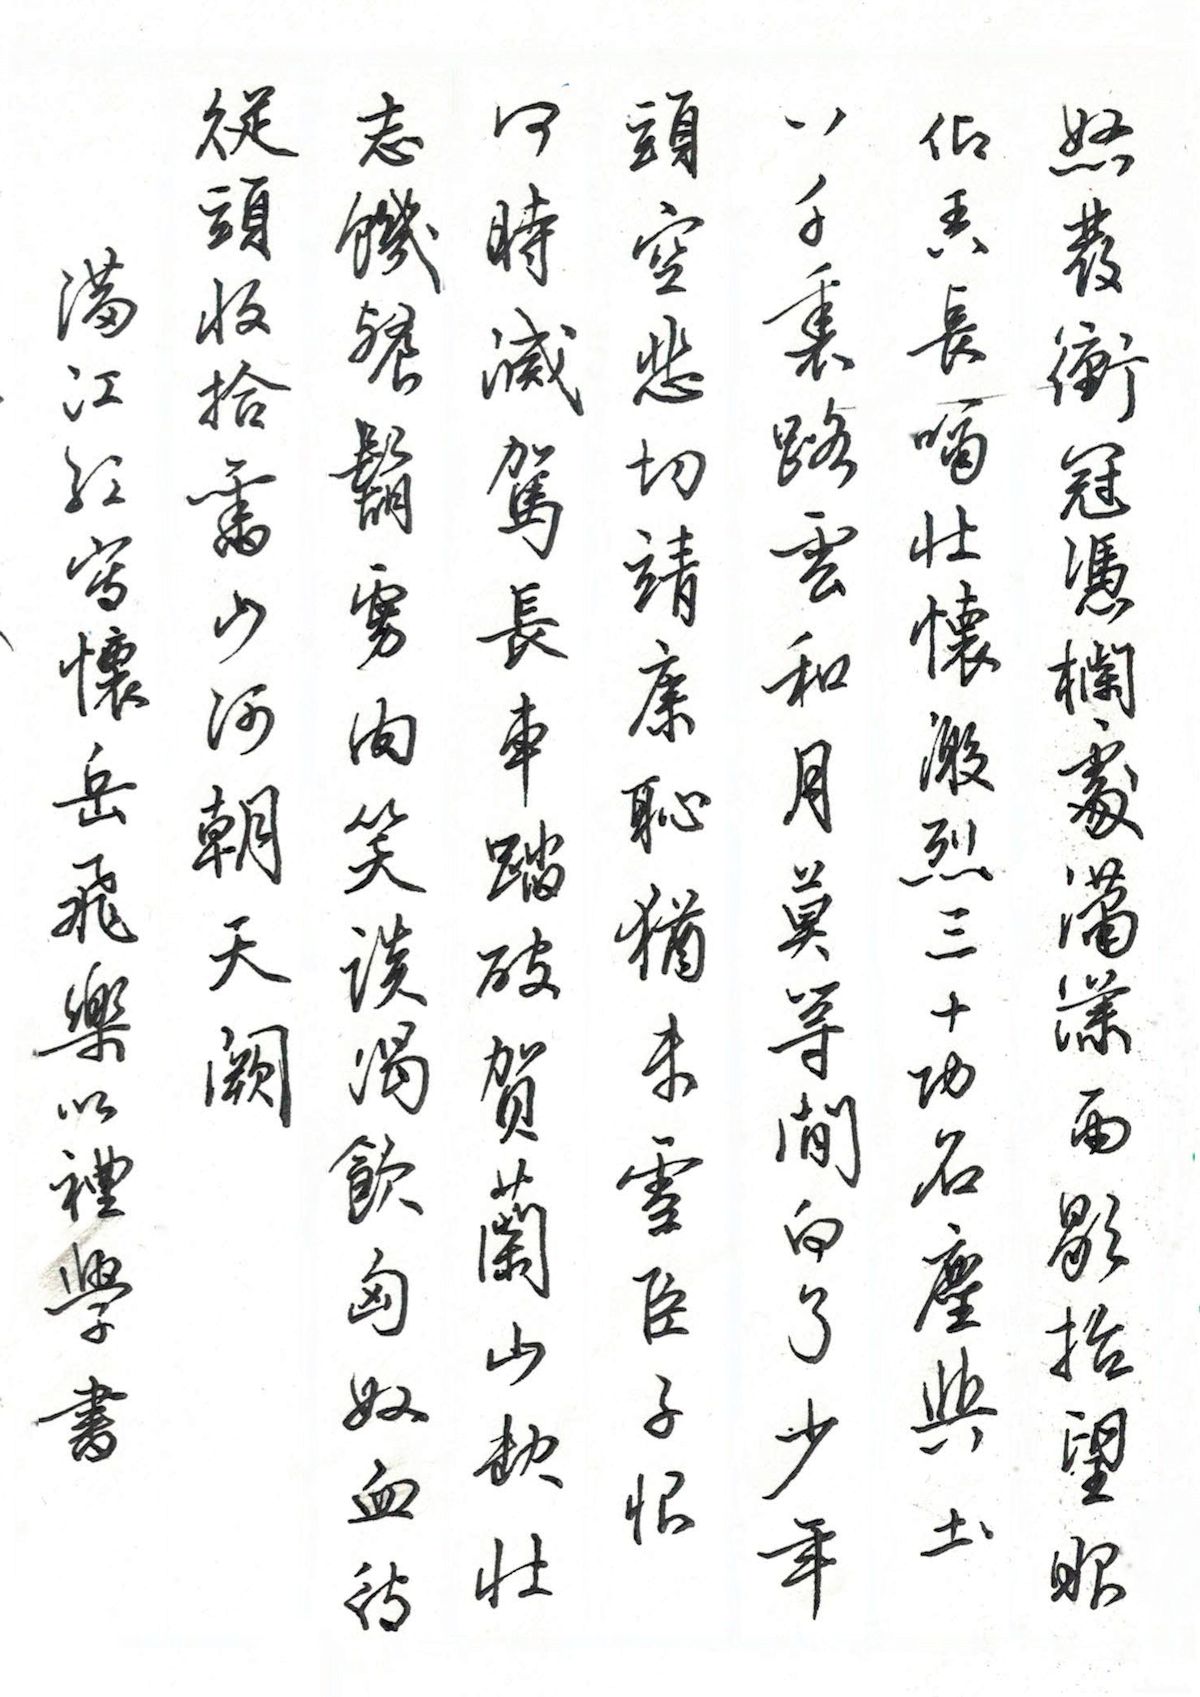 怒發衝冠憑欄處瀟瀟雨歇抬望眼
仰天長嘯壯懷激烈三十功名塵與土
八千裏路雲和月莫等閒白了少年
頭空悲切靖康恥猶未雪臣子恨
何時滅駕長車踏破賀蘭山缺壯
志饑餐鬍虜肉笑談渴飲匈奴血待
從頭收拾舊山河朝天闕
滿江紅寫懷岳飛樂以禮學書